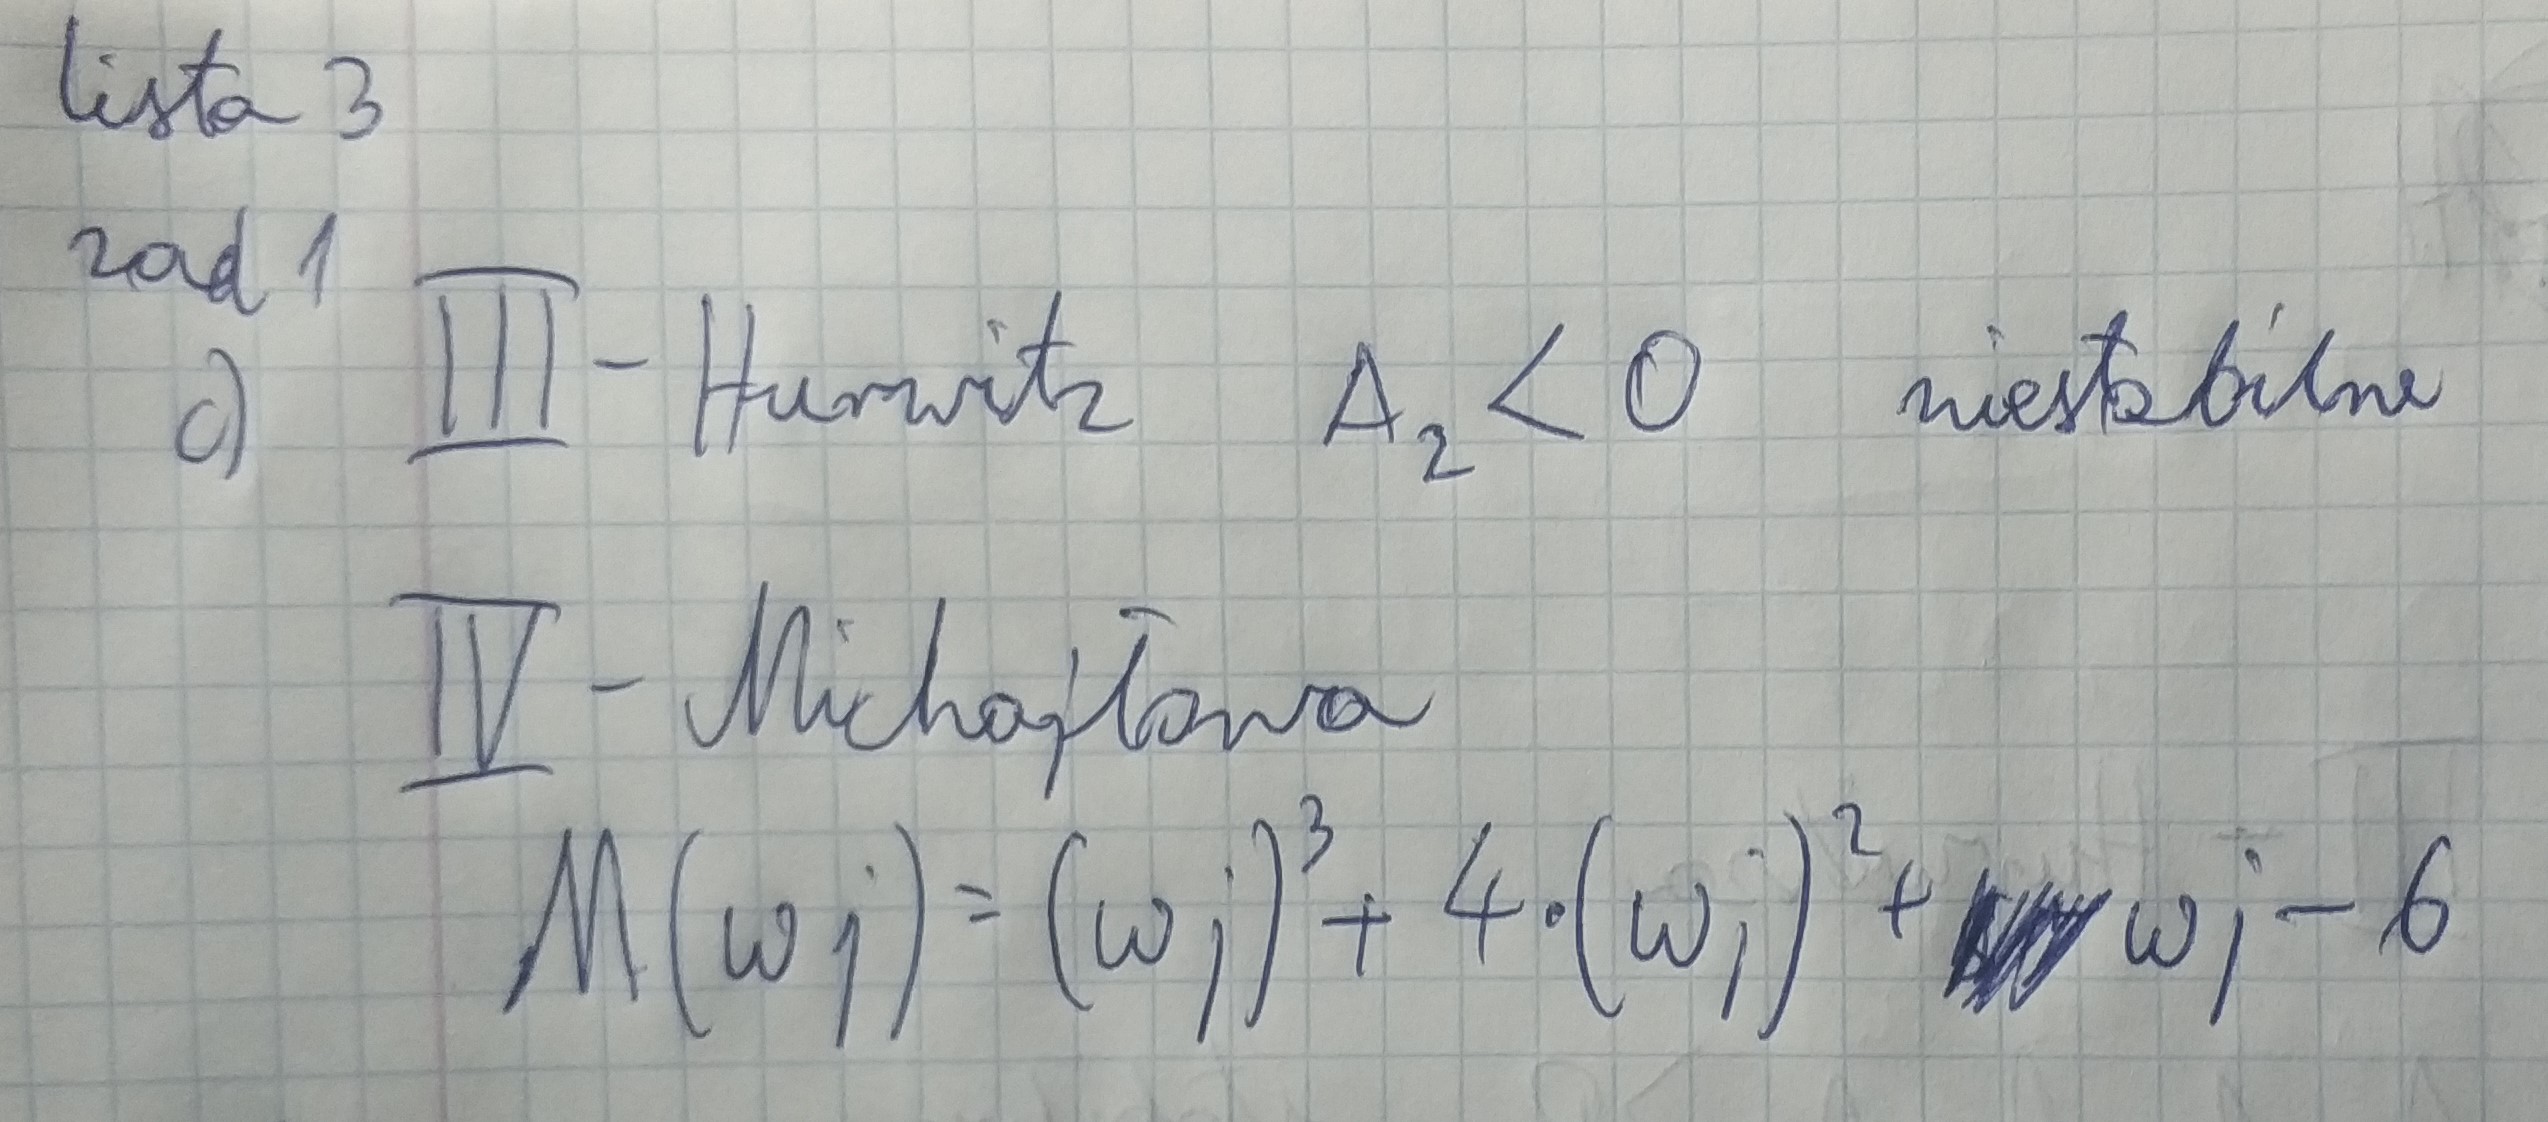 lista 3
zad 1
c) III - Hurwitz A₂ < 0 niestabilne
IV - Michajłowa
M(ωj) = (ωj)³ + 4·(ωj)² + ωj - 6